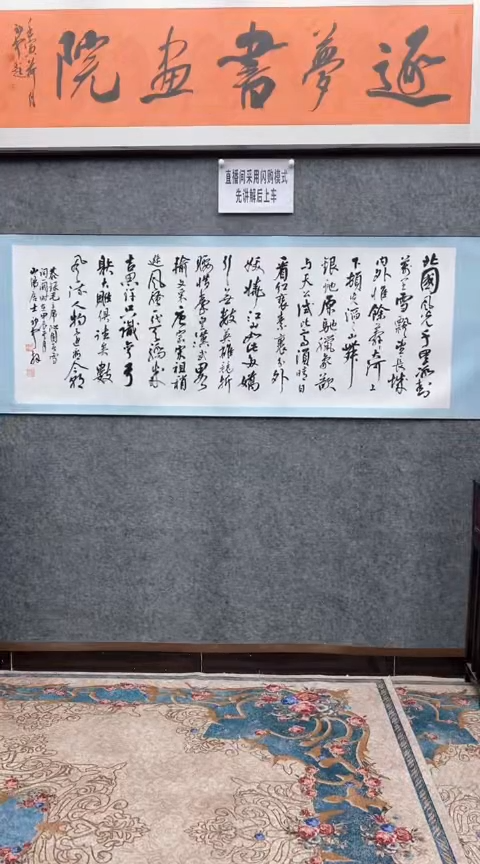 逐夢書畫院
直播间采用闪购模式
先讲解后上车
北國風光千里冰封
萬里雪飄望長城
内外惟餘莽莽大河上
下頓失滔滔山舞
銀蛇原馳蠟象欲
与天公試比高須晴日
看红裝素裹分外
妖嬈江山如此多嬌
引无數英雄競折
腰惜秦皇漢武略
輸文采唐宗宋祖稍
遜風騷一代天驕成
吉思汗只識彎弓
射大雕俱往矣數
風流人物還看今朝